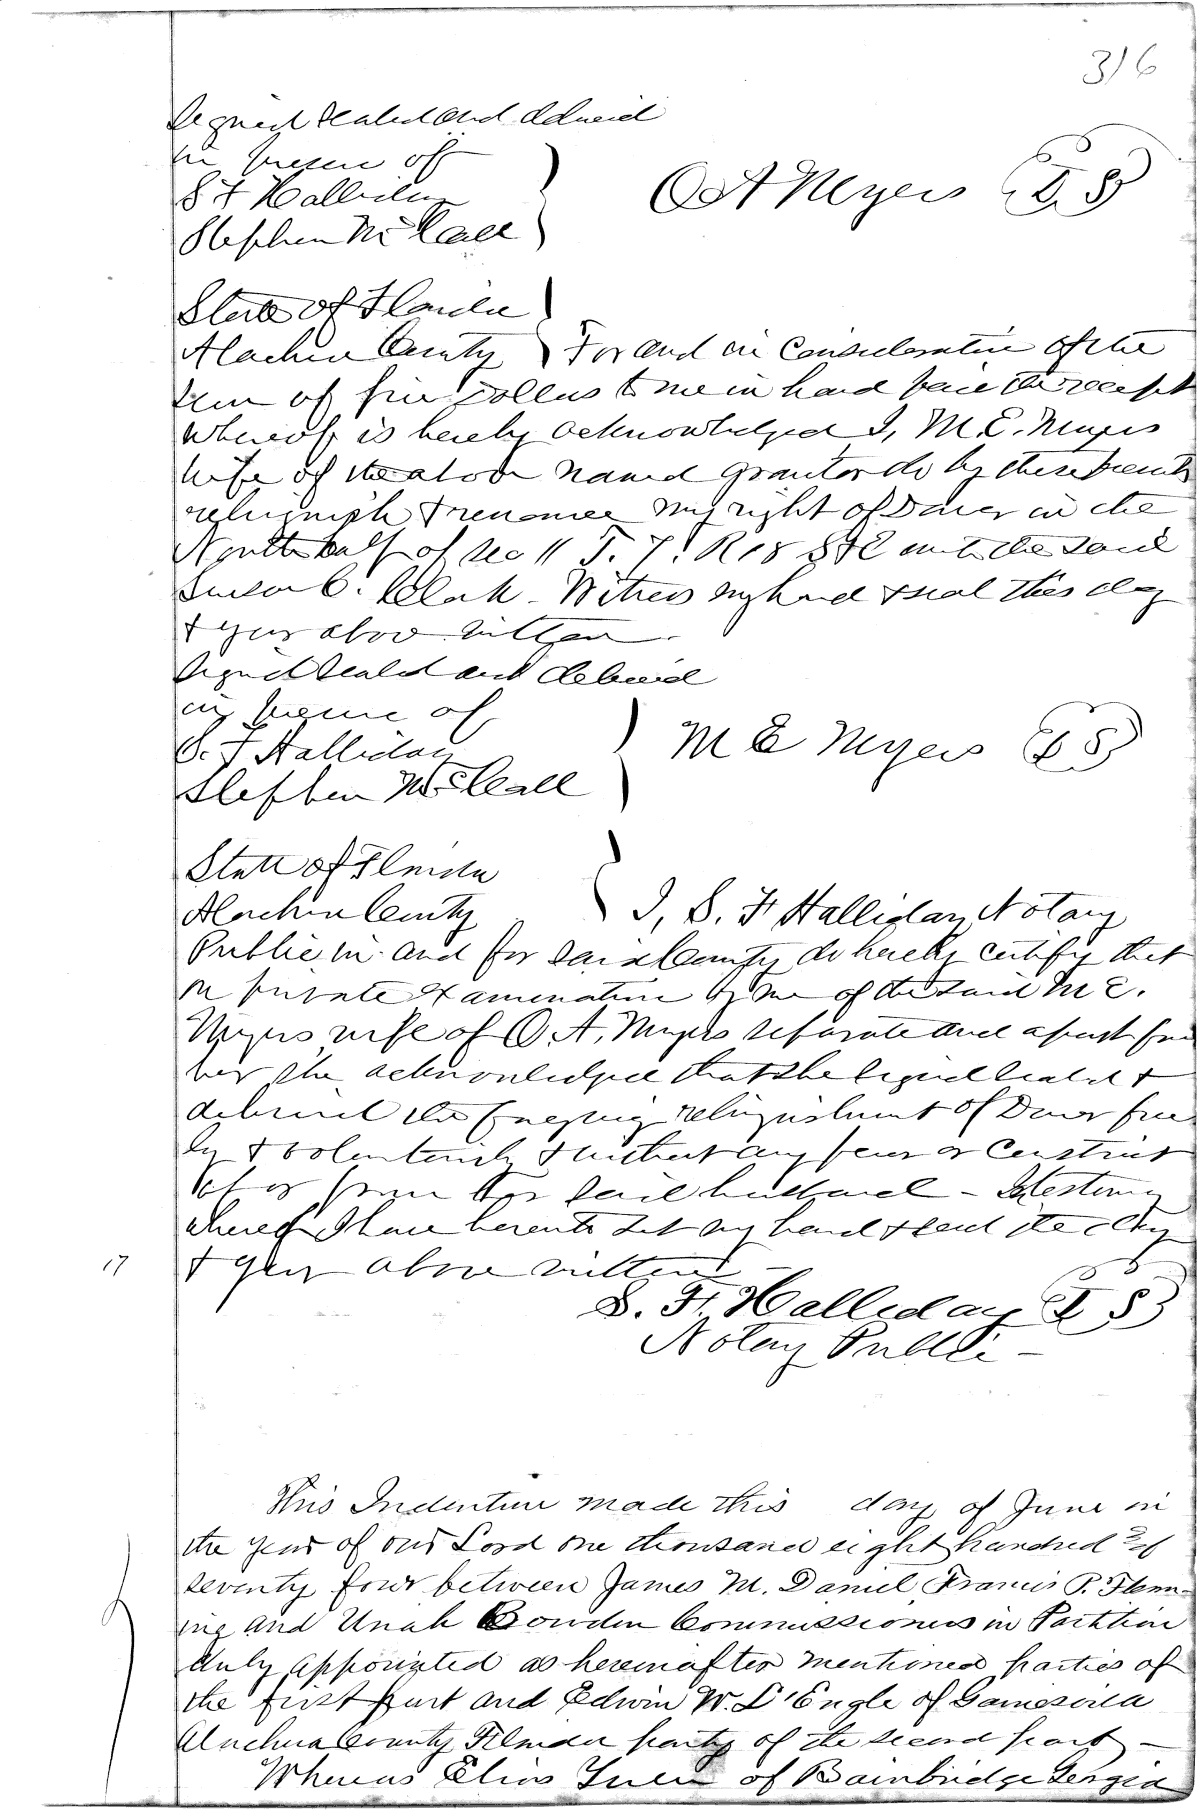 316
Signed sealed and delivered
in presence of
S F Halliday
Stephen McCall
O A Myers L S
State of Florida
Alachua County For and in consideration of the
sum of five dollars to me in hand paid the receipt
whereof is hereby acknowledged I, M. E. Myers
wife of the above named grantor do by these presents
relinquish & renounce my right of Dower in the
North half of Sec 11 T. 7. R 18 S & E unto the said
Susan C. Clark - Witness my hand & seal this day
& year above written -
Signed sealed and delivered
in presence of
S. F Halliday
Stephen McCall
M E Myers L S
State of Florida
Alachua County I, S. F Halliday Notary
Public in and for said County do hereby certify that
on private examination by me of the said M E.
Myers wife of O. A. Myers separate and apart from
her she acknowledged that she signed sealed &
delivered the foregoing relinquishment of Dower free
ly & voluntarily & without any fear or constraint
of or from her said husband - In testimony
whereof I have hereunto set my hand & seal the day
17
& year above written -
S. F. Halliday L S
Notary Public -
This Indenture made this day of June in
the year of our Lord one thousand eight hundred and
seventy four between James M. Daniel, Francis P. Flem-
ing and Uriah Bowden Commissioners in Partition
duly appointed as hereinafter mentioned parties of
the first part and Edwin W. L'Engle of Gainesville
Alachua County Florida party of the second part -
Whereas Elias of Bainbridge Georgia